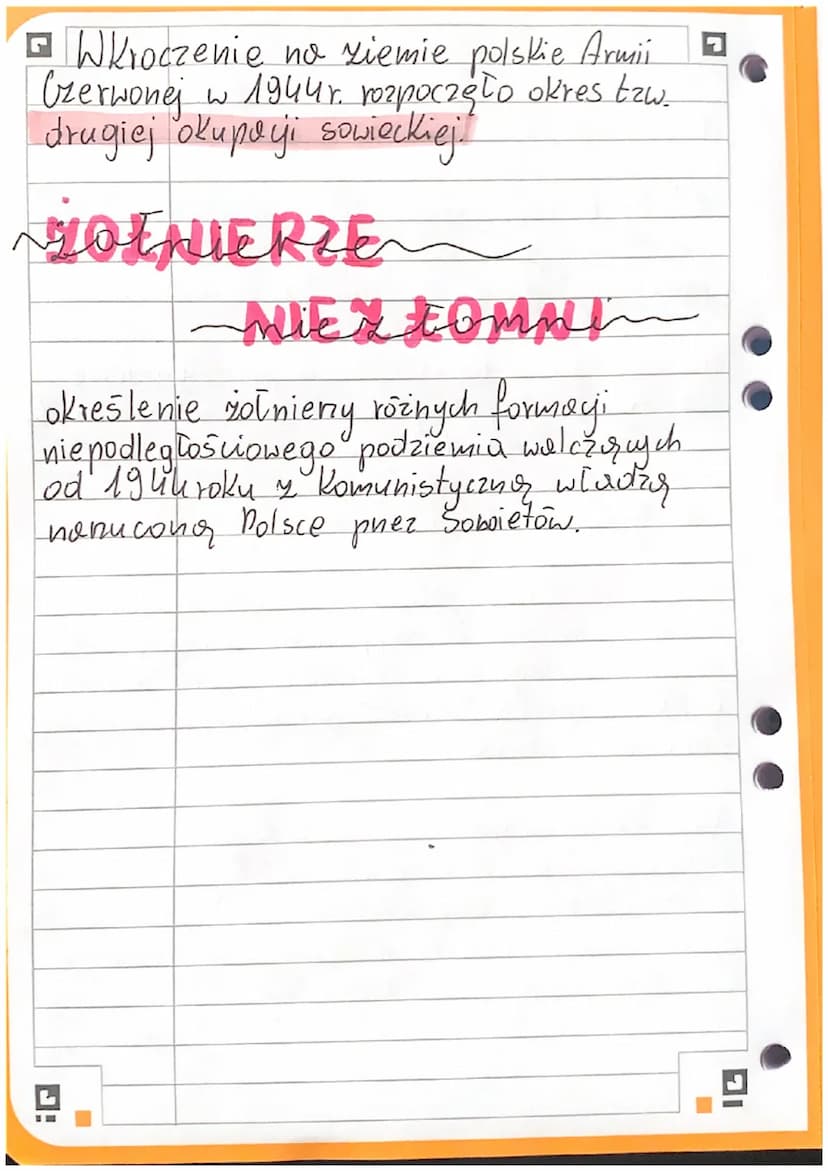 Wkroczenie na ziemie polskie Armii
Czerwonej w 1944r. rozpoczęło okres tzw.
drugiej okupacji sowieckiej.
ŻOŁNIERZE
NIEZŁOMNI
określenie żołnierzy różnych formacji
niepodległościowego podziemia walczących
od 1944 roku z komunistyczną władzą
narzuconą Polsce przez Sowietów.